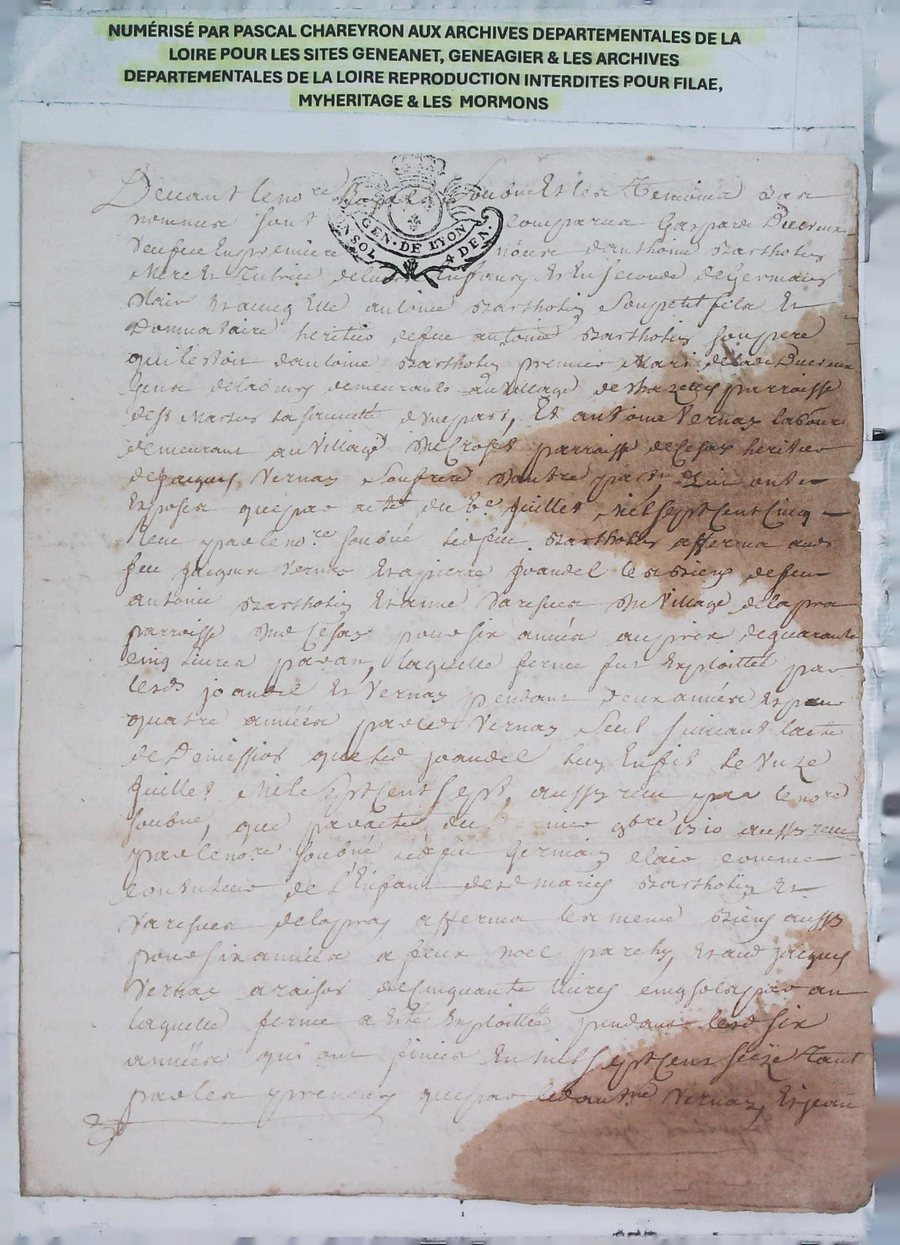 NUMÉRISÉ PAR PASCAL CHAREYRON AUX ARCHIVES DEPARTEMENTALES DE LA
LOIRE POUR LES SITES GENEANET, GENEAGIER & LES ARCHIVES
DEPARTEMENTALES DE LA LOIRE REPRODUCTION INTERDITES POUR FILAE,
MYHERITAGE & LES MORMONS
GEN. DE LYON
4 DEN.
Devant le no.re soubné Et les Temoins bas
nommes sont comparus Gaspade
veufve En premiere d'anthoine Barthollin
Mere Et Tutrice de Et En seconde de Germain
Clair Et avecq Elle antoine Barthollin Son petit fils Et
Donnataire heritier de feu antoine Barthollin son pere
qui lestoit dantoine Barthollin premier Mari de lad
demeurants au village de parroisse
de St Marcel dune part, Et antoine Vernay
demeurant au village du Crozet parroisse de Cesay heritier
de Jacques Vernay Son frere dautre part, Lesquels ont
Exposé que par acte du 6e Juillet Mil Sept Cent Cinq
receu par le no.re soubné led feu Barthollin afferma aud
feu Jacques Vernay Et a pierre Joandel les biens de feu
antoine Barthollin Et anne du village de lapra
parroisse dud Cesay pour six années au prix de quarante
cinq livres par an, laquelle ferme fut Exploittée par
lesd Joandel Et Vernay pendant deux années Et pour
quatre années par led Vernay Seul suivant lacte
de Demission que led Joandel luy En fit Le Unze
Juillet Mil Sept Cent Sept, aussy receu par le no.re
soubné, que par acte du 9bre 1710 aussy receu
par le no.re soubné led feu Germain Clair comme
de l'Enfant desd maries Barthollin Et
de lapra afferma les meme biens aussy
pour six années a feux noel Et aud Jacques
Vernay a raison de cinquante livres cinq sols par an
laquelle ferme a Esté Exploittée pendant lesd six
années qui ont finies En mil Sept Cent Seize Tant
par les preneurs que par led ant.ne Vernay, Et Jean